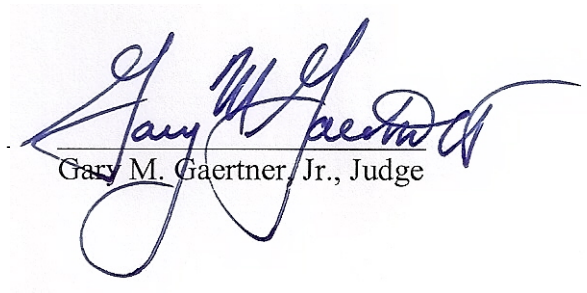 Gary M Gaertner Jr
Gary M. Gaertner, Jr., Judge